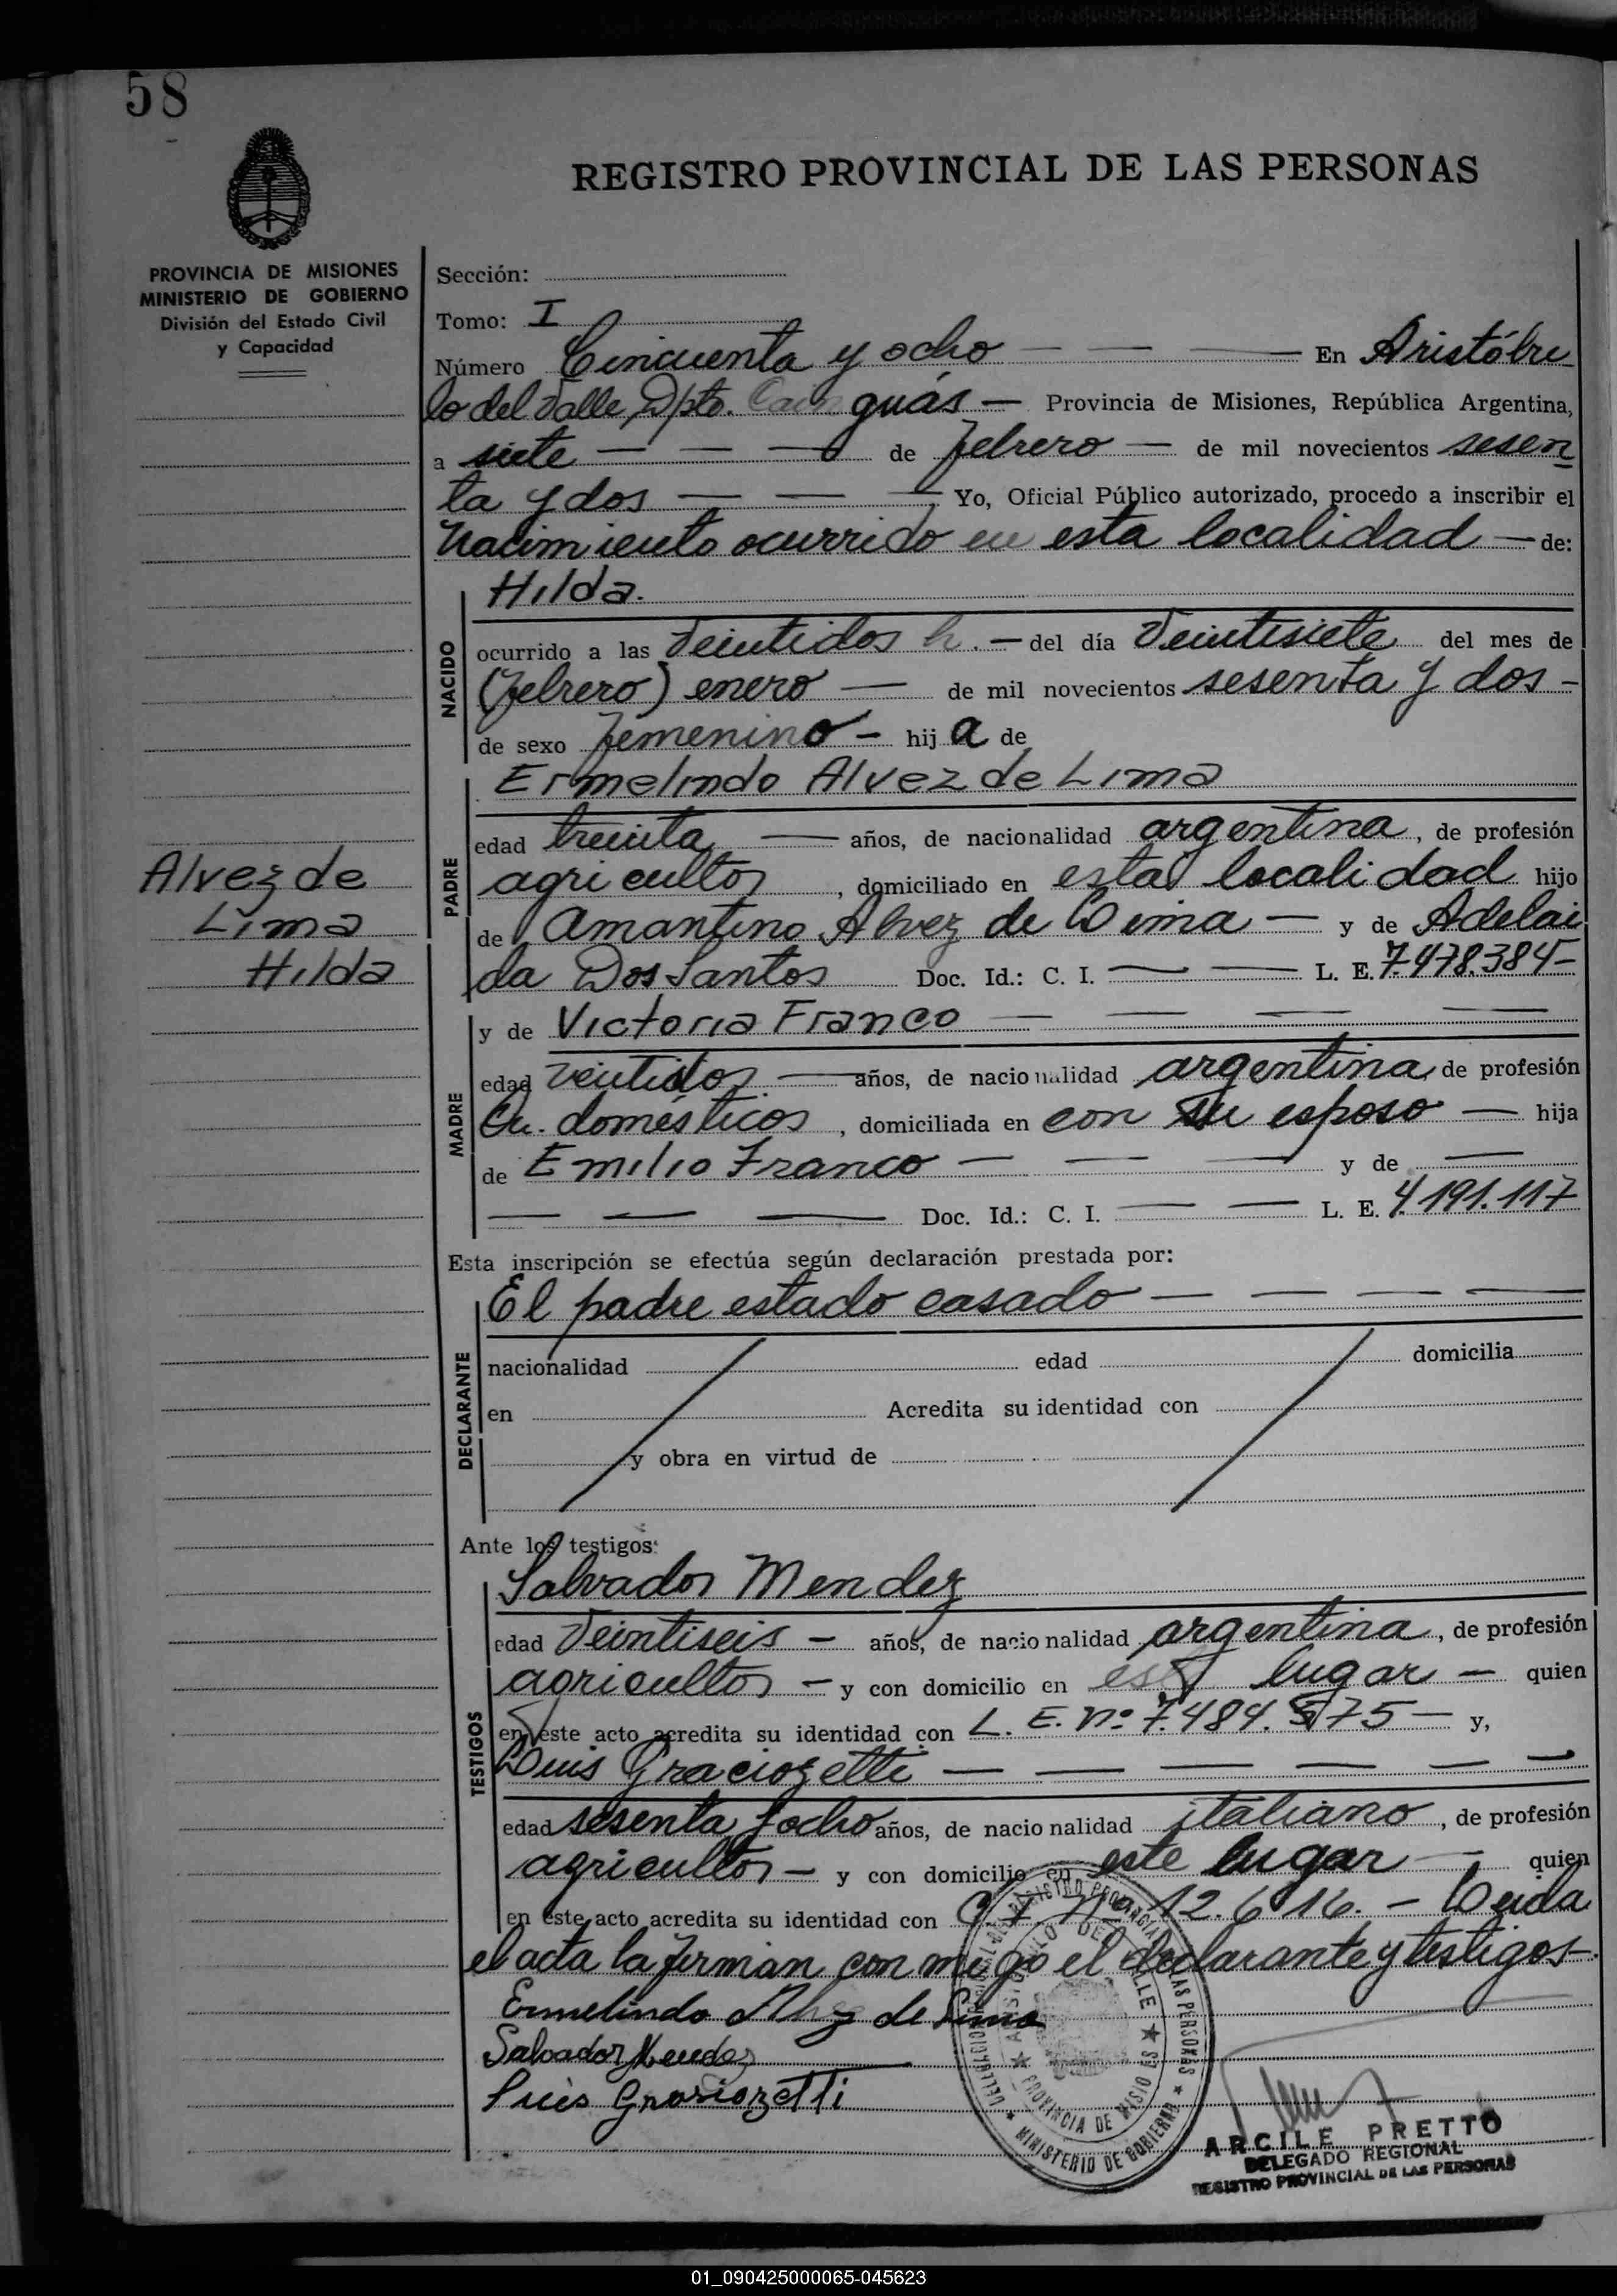 58
REGISTRO PROVINCIAL DE LAS PERSONAS
PROVINCIA DE MISIONES
MINISTERIO DE GOBIERNO
División del Estado Civil
y Capacidad
Sección:
Tomo: I
Número Cincuenta y ocho — — — En Aristóbu
lo del Valle, Dpto. Cainguás — Provincia de Misiones, República Argentina,
a siete — — — de febrero — de mil novecientos sesen
ta y dos — — — Yo, Oficial Público autorizado, procedo a inscribir el
nacimiento ocurrido en esta localidad — de:
NACIDO
Hilda.
ocurrido a las veintidos h. — del día veintisiete del mes de
(febrero) enero — de mil novecientos sesenta y dos —
de sexo femenino — hija de
PADRE
Ermelindo Alvez de Lima
edad treinta — años, de nacionalidad argentina, de profesión
agricultor, domiciliado en esta localidad hijo
de Amantino Alvez de Lima — y de Adelai
da Dos Santos Doc. Id.: C. I. — — L. E. 7.478.384 —
Alvez de
Lima
Hilda
MADRE
y de Victoria Franco — — — —
edad veintidos — años, de nacionalidad argentina, de profesión
Qu. domésticos, domiciliada en con su esposo — hija
de Emilio Franco — — — y de —
— — — Doc. Id.: C. I. — — L. E. 4.191.117
Esta inscripción se efectúa según declaración prestada por:
DECLARANTE
El padre estado casado — — — —
nacionalidad edad domicilia
en Acredita su identidad con
y obra en virtud de
Ante los testigos:
TESTIGOS
Salvador Mendez
edad veintiseis — años, de nacionalidad argentina, de profesión
agricultor — y con domicilio en lugar — quien
en este acto acredita su identidad con L. E. Nº 7.484.575 — y,
Luis Graciozetti — — — — — —
edad sesenta y ocho años, de nacionalidad italiano, de profesión
agricultor — y con domicilio en este lugar — quien
en este acto acredita su identidad con C. I. Nº 12.616. — Leida
el acta la firman con migo el declarante y testigos —.
Ermelindo Alvez de Lima
Salvador Mendez
Luis Grasiozetti
MINISTERIO DE GOBIERNO
PROVINCIA DE MISIONES
ARCILE PRETTO
DELEGADO REGIONAL
REGISTRO PROVINCIAL DE LAS PERSONAS
01_090425000065-045623